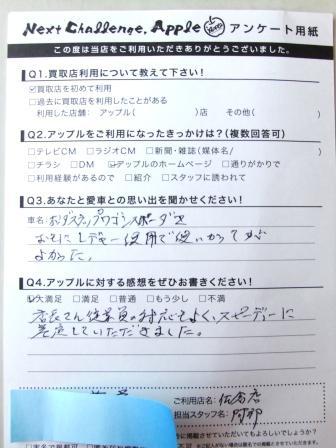 Next Challenge. Apple アンケート用紙
この度は当店をご利用いただきありがとうございました。
Q1.買取店利用について教えて下さい！
☑買取店を初めて利用
□過去に買取店を利用したことがある
利用した店舗： アップル（ ）店 その他（ ）
Q2.アップルをご利用になったきっかけは？(複数回答可)
□テレビCM □ラジオCM □新聞・雑誌(媒体名／ ）
□チラシ □DM ☑アップルのホームページ □通りがかりで
□利用経験があるので □紹介 □スタッフに誘われて
Q3.あなたと愛車との思い出を聞かせください！
車名：ホンダステップワゴンスパーダを
おもにレジャー使用で使いかってが
よかった。
Q4.アップルに対する感想をぜひお書きください！
☑大満足 □満足 □普通 □もう少し □不満
店長さん従業員の対応もよく、スピーディーに
査定していただきました。
ご利用店名：佐倉店
担当スタッフ名：阿部
に掲載させていただいてもよろしいでしょうか？